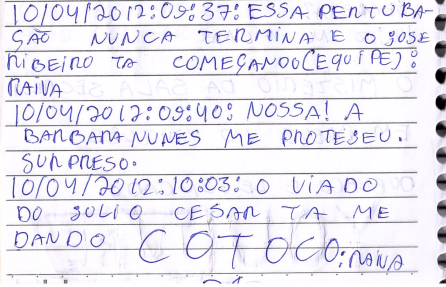 10/04/2012:09:37: ESSA PERTUBA-
ÇÃO NUNCA TERMINA E O JOSE
RIBEIRO TA COMEÇANDO(EQUIPE):
RAIVA
10/04/2012:09:40: NOSSA! A
BARBARA NUNES ME PROTEGEU.
SURPRESO.
10/04/2012:10:03: O VIADO
DO JULIO CESAR TA ME
DANDO COTOCO: RAIVA